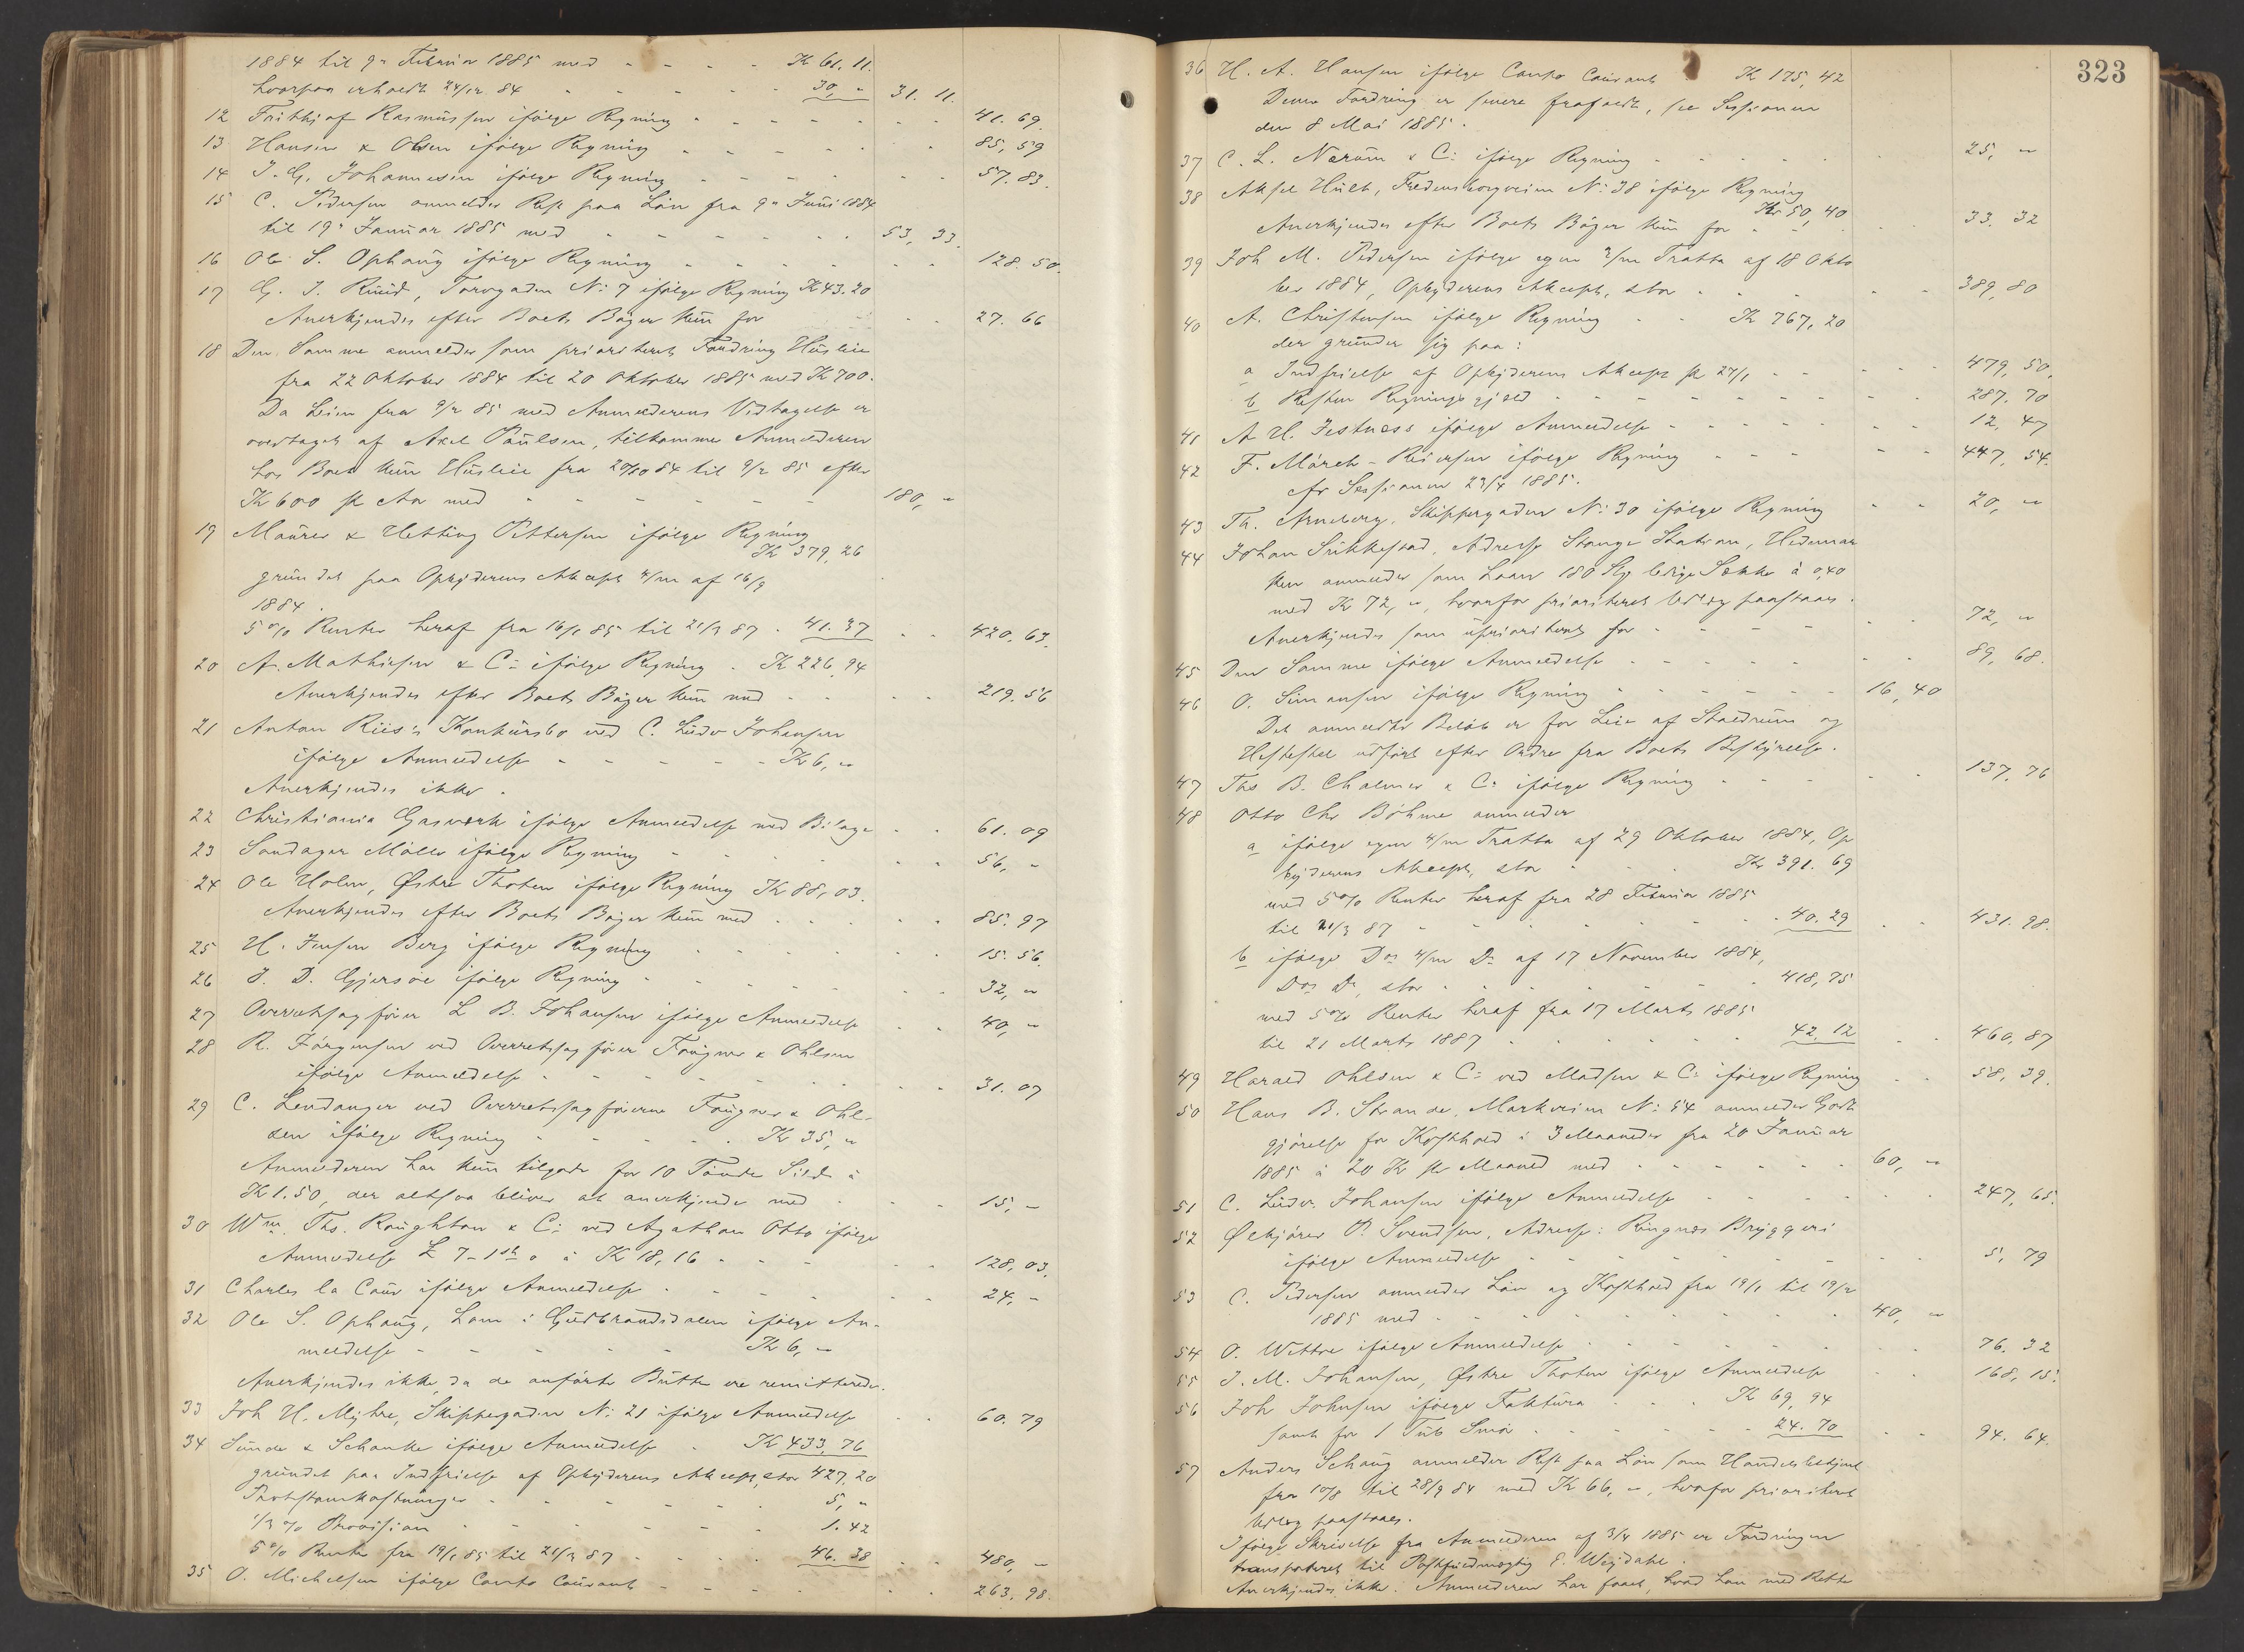 1884 til 9de Februar 1885 med - - - - Kr 61. 11.
hvorpaa erholdt 24/12 84 - - - - 30, " 31. 11.
12 Frithjof Rasmussen ifølge Regning - - - - 41. 69.
13 Hansen & Olsen ifølge Regning - - - - 85, 59
14 J. G. Johannesen ifølge Regning - - - - 57. 83.
15 C. Pedersen anmelder Rest paa Løn fra 9de Juni 1884
til 19de Januar 1885 med - - - - 53, 33.
16 Ole S. Ophaug ifølge Regning - - - - 128. 50.
17 G. J. Ruud, Torvgaden No: 7 ifølge Regning Kr 43. 20
Anerkjendes efter Boets Bøger kun for - - 27. 66
18 Den Samme anmelder som prioriteret Fordring Husleie
fra 22 Oktober 1884 til 20 Oktober 1885 med Kr 700.
Da Leien fra 9/2 85 med Anmelderens Vedtagelse er
overtaget af Axel Paulsen, tilkommer Anmelderen
hos Boet kun Husleie fra 20/10 84 til 9/2 85 efter
Kr 600 pr Aar med - - - - 180, "
19 Maurer & Hetting Pettersen ifølge Regning
Kr 379, 26
grundet paa Opbyderens Akcept 4/m af 16/9
1884.
5 % Renter heraf fra 16/1 85 til 21/3 87 . 41. 37 - - 420. 63.
20 A. Mathiesen & Co ifølge Regning . Kr 226, 94
Anerkjendes efter Boets Bøger kun med - - - 219. 56
21 Anton Riis's Konkursbo ved C. Ludv Johansen
ifølge Anmeldelse - - - - Kr 6, "
Anerkjendes ikke.
22 Christiania Gasværk ifølge Anmeldelse med Bilage - - 61. 09
23 Sandager Mølle ifølge Regning - - - - 56, "
24 Ole Holm, Østre Thoten ifølge Regning Kr 88, 03.
Anerkjendes efter Boets Bøger kun med - - - 85. 97
25 H. Jensen Berg ifølge Regning - - - - 15. 56.
26 J. D. Gjersøe ifølge Regning - - - - 32, "
27 Overretssagfører L B. Johansen ifølge Anmeldelse - - 40, "
28 R. Jørgensen ved Overretssagfører Fougner & Ohlsen
ifølge Anmeldelse - - - - 31. 07
29 C. Lendanger ved Overretssagførerne Fougner & Ohl-
sen ifølge Regning - - - - Kr 35, "
Anmelderen har kun tilgode for 10 Tønder Sild à
Kr 1. 50, der altsaa bliver at anerkjende med - - 15, "
30 Wm. Ths. Roughton & Co ved Agathon Otto ifølge
Anmeldelse £ 7 - 1 sh 0 à Kr 18, 16 - - - - 128, 03.
31 Charles la Cour ifølge Anmeldelse - - - - 24, "
32 Ole S. Ophaug, Lom i Gudbrandsdalen ifølge An-
meldelse - - - - Kr 6, "
Anerkjendes ikke, da de anførte Bøtter ere remitterede.
33 Joh H. Myhre, Skippergaden No: 21 ifølge Anmeldelse - - 60. 79
34 Sunde & Schanke ifølge Anmeldelse . Kr 433, 76
grundet paa Indfrielse af Opbyderens Akcept, stor 427, 20
Protestomkostninger - - - - 5, "
1/3 % Provision - - - - 1. 42
5 % Renter fra 19/1 85 til 21/3 87 - - - 46. 38 - - 480, "
35 O. Michelsen ifølge Conto Courant - - - - 263. 98.
323
36 H. A. Hansen ifølge Conto Courant Kr 175, 42
Denne Fordring er senere frafaldt, se Sessionen
den 8 Mai 1885.
37 C. L. Narum & Co: ifølge Regning - - - - 25, "
38 Aksel Hulth, Fredensborgveien No: 38 ifølge Regning
Kr 50, 40
Anerkjendes efter Boets Bøger kun for - - - 33. 32
39 Joh M. Pedersen ifølge egen 3/m Tratta af 18 Okto
ber 1884, Opbyderens Akcept, stor - - - - 389, 80
40 A. Christensen ifølge Regning - - Kr 767, 20
der grunder sig paa:
a Indfrielse af Opbyderens Akcept pr 27/1 - - - - 479, 50.
b Resten Regningsgjæld - - - - 287. 70
41 A H. Jestness ifølge Anmeldelse - - - - 12, 47
42 F. Mørch-Reiersen ifølge Regning - - - - 447, 54.
cfr Sessionen 23/4 1885.
43 Th. Arneberg, Skippergaden No: 30 ifølge Regning - - 20, "
44 Johan Sukkestad, Adresse Stange Station, Hedemar
ken anmelder som Laan 180 Stk ledige Sække à 0,40
med Kr 72, ", hvorfor prioriteret Udlæg paastaaes.
Anerkjendes som uprioriteret for - - - - 72, "
45 Den Samme ifølge Anmeldelse - - - - 89, 68.
46 O. Simonsen ifølge Regning - - - - 16, 40
Det anmeldte Beløb er for Leie af Staldrum og
Hestestel udført efter Ordre fra Boets Bestyrelse.
47 Ths B. Chalmer & Co: ifølge Regning - - - - 137, 76
48 Otto Chr Bøhme anmelder
a ifølge egen 4/m Tratta af 29 Oktober 1884, Op
byderens Akcept, stor - - - Kr 391. 69
med 5 % Renter heraf fra 28 Februar 1885
til 21/3 87 - - - - 40. 29 - - 431. 98.
b ifølge Do 4/m Do af 17 November 1884,
Do Do, stor - - - - 418, 75
med 5 % Renter heraf fra 17 Marts 1885
til 21 Marts 1887 - - - - 42, 12 - - 460, 87
49 Harald Ohlsen & Co: ved Madsen & Co: ifølge Regning - - 58, 39.
50 Hans B. Strande, Markveien No: 54 anmelder Godt
gjørelse for Kosthold i 3 Maaneder fra 20 Januar
1885 à 20 Kr pr Maaned med - - - - 60, "
51 C. Ludv. Johansen ifølge Anmeldelse - - - - 247, 65.
52 Ølkjører P. Svendsen, Adresse: Ringnæs Bryggeri
ifølge Anmeldelse - - - - 5, 79
53 C. Pedersen anmelder Løn og Kosthold fra 19/1 til 19/2
1885 med - - - - 40, "
54 O. Wettre ifølge Anmeldelse - - - - 76. 32
55 J. M. Johansen, Østre Thoten ifølge Anmeldelse - - 168, 15.
56 Joh Johnsen ifølge Faktura - - - Kr 69, 94
samt for 1 Tub Smør - - - - 24. 70 - - 94. 64.
57 Anders Schaug anmelder Rest paa Løn som Handelsbetjent
fra 10/8 til 28/9 84 med Kr 66, ", hvorfor prioriteret
Udlæg paastaaes.
Ifølge Skrivelse fra Anmelderen af 3/4 1885 er Fordringen
transporteret til Postfuldmægtig E. Weydahl.
Anerkjendes ikke. Anmelderen har faaet, hvad han med Rette